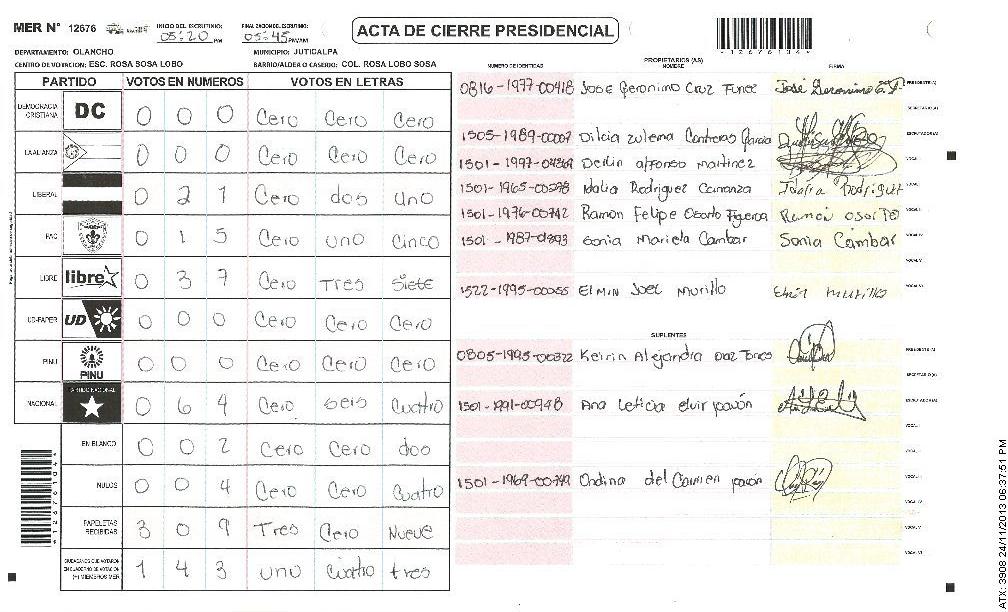 MER Nº 12676 INICIO DEL ESCRUTINIO: 05:20 PM FINALIZACION DEL ESCRUTINIO: 05:45 PM/AM
ACTA DE CIERRE PRESIDENCIAL
DEPARTAMENTO: OLANCHO MUNICIPIO: JUTICALPA
CENTRO DE VOTACION: ESC. ROSA SOSA LOBO BARRIO/ALDEA O CASERIO: COL. ROSA LOBO SOSA
PARTIDO VOTOS EN NUMEROS VOTOS EN LETRAS
DEMOCRACIA CRISTIANA DC 0 0 0 Cero Cero Cero
LA ALIANZA 0 0 0 Cero Cero Cero
LIBERAL 0 2 1 Cero dos uno
PAC 0 1 5 Cero uno Cinco
LIBRE libre 0 3 7 Cero Tres Siete
UD-FAPER UD 0 0 0 Cero Cero Cero
PINU PINU 0 0 0 Cero Cero Cero
NACIONAL PARTIDO NACIONAL 0 6 4 Cero seis Cuatro
EN BLANCO 0 0 2 Cero Cero dos
NULOS 0 0 4 Cero Cero Cuatro
PAPELETAS RECIBIDAS 3 0 9 Tres Cero Nueve
CIUDADANOS QUE VOTARON EN CUADERNO DE VOTACION (+) MIEMBROS MER 1 4 3 uno Cuatro tres
PROPIETARIOS (AS)
NUMERO DE IDENTIDAD NOMBRE FIRMA
0816-1977-00418 Jose Geronimo Cruz Funez José Geronimo C. F. PRESIDENTE (A)
SECRETARIO (A)
1505-1989-00007 Dilcia Zulema Contreras Garcia ESCRUTADOR (A)
1501-1997-04269 Derlin alfonso martinez VOCAL I
1501-1965-00298 Idalia Rodriguez Carranza Idalia Rodriguez
1501-1976-00742 Ramon Felipe Osorto Figueroa Ramon Osorto
1501-1987-01893 Sonia Mariela Cambar Sonia Cambar VOCAL IV
VOCAL V
1522-1995-00255 Elmin Joel Murillo Elmin murillo VOCAL VI
SUPLENTES
0805-1995-00322 Keirin Alejandra Diaz Torres PRESIDENTE (A)
SECRETARIO (A)
1501-1991-00948 Ana Leticia elvir pavón ESCRUTADOR (A)
VOCAL I
1501-1969-00749 Ondina del Carmen pavón
VOCAL IV
VOCAL V
VOCAL VI
12676104
ATX: 3908 24/11/2013 06:37:51 PM